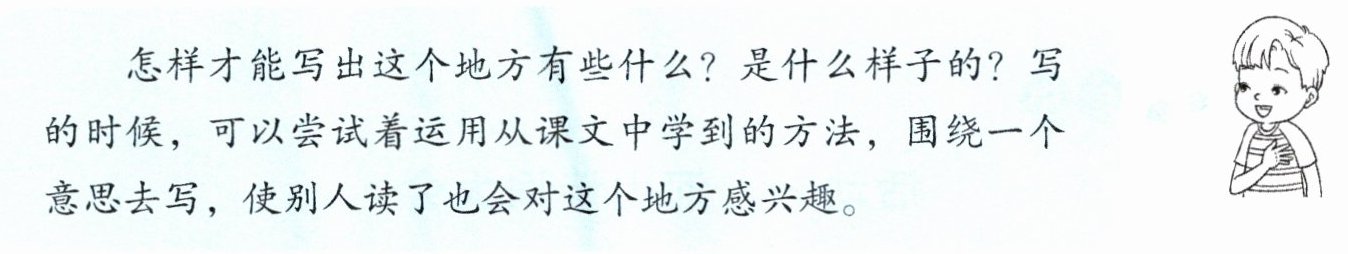 怎样才能写出这个地方有些什么？是什么样子的？写
的时候，可以尝试着运用从课文中学到的方法，围绕一个
意思去写，使别人读了也会对这个地方感兴趣。